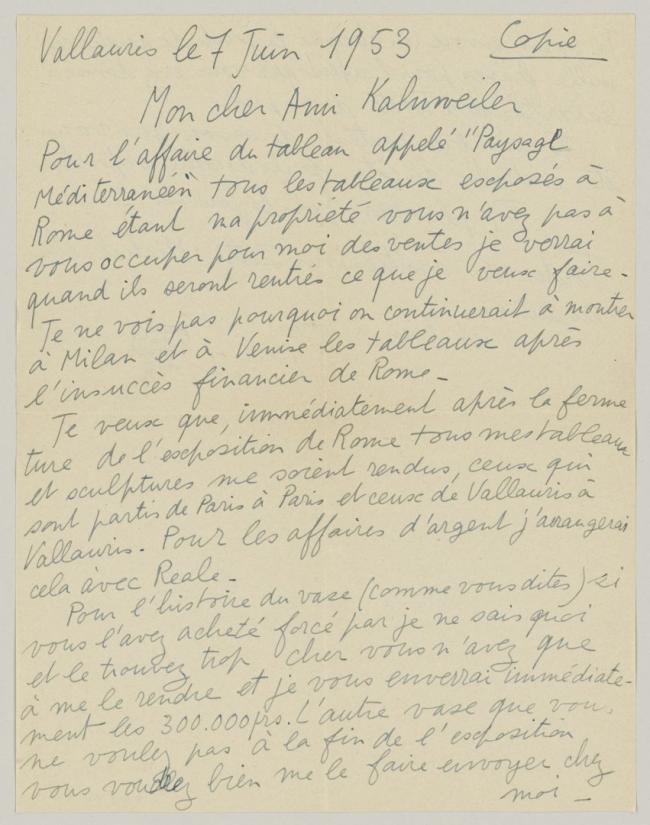 Vallauris le 7 Juin 1953 Copie
Mon cher Ami Kahnweiler
Pour l'affaire du tableau appelé "Paysage
Méditerranéen" tous les tableaux exposés à
Rome étant ma propriété vous n'avez pas à
vous occuper pour moi des ventes je verrai
quand ils seront rentrés ce que je veux faire-
Je ne vois pas pourquoi on continuerait à montrer
à Milan et à Venise les tableaux après
l'insuccès financier de Rome-
Je veux que, immédiatement après la ferme
ture de l'exposition de Rome tous mes tableaux
et sculptures me soient rendus, ceux qui
sont partis de Paris à Paris et ceux de Vallauris à
Vallauris. Pour les affaires d'argent j'arrangerai
cela avec Reale-
Pour l'histoire du vase (comme vous dites) si
vous l'avez acheté forcé par je ne sais quoi
et le trouvez trop cher vous n'avez que
à me le rendre et je vous enverrai immédiate-
ment les 300.000 frs. L'autre vase que vous
ne voulez pas à la fin de l'exposition
vous voudrez bien me le faire envoyer chez
moi-